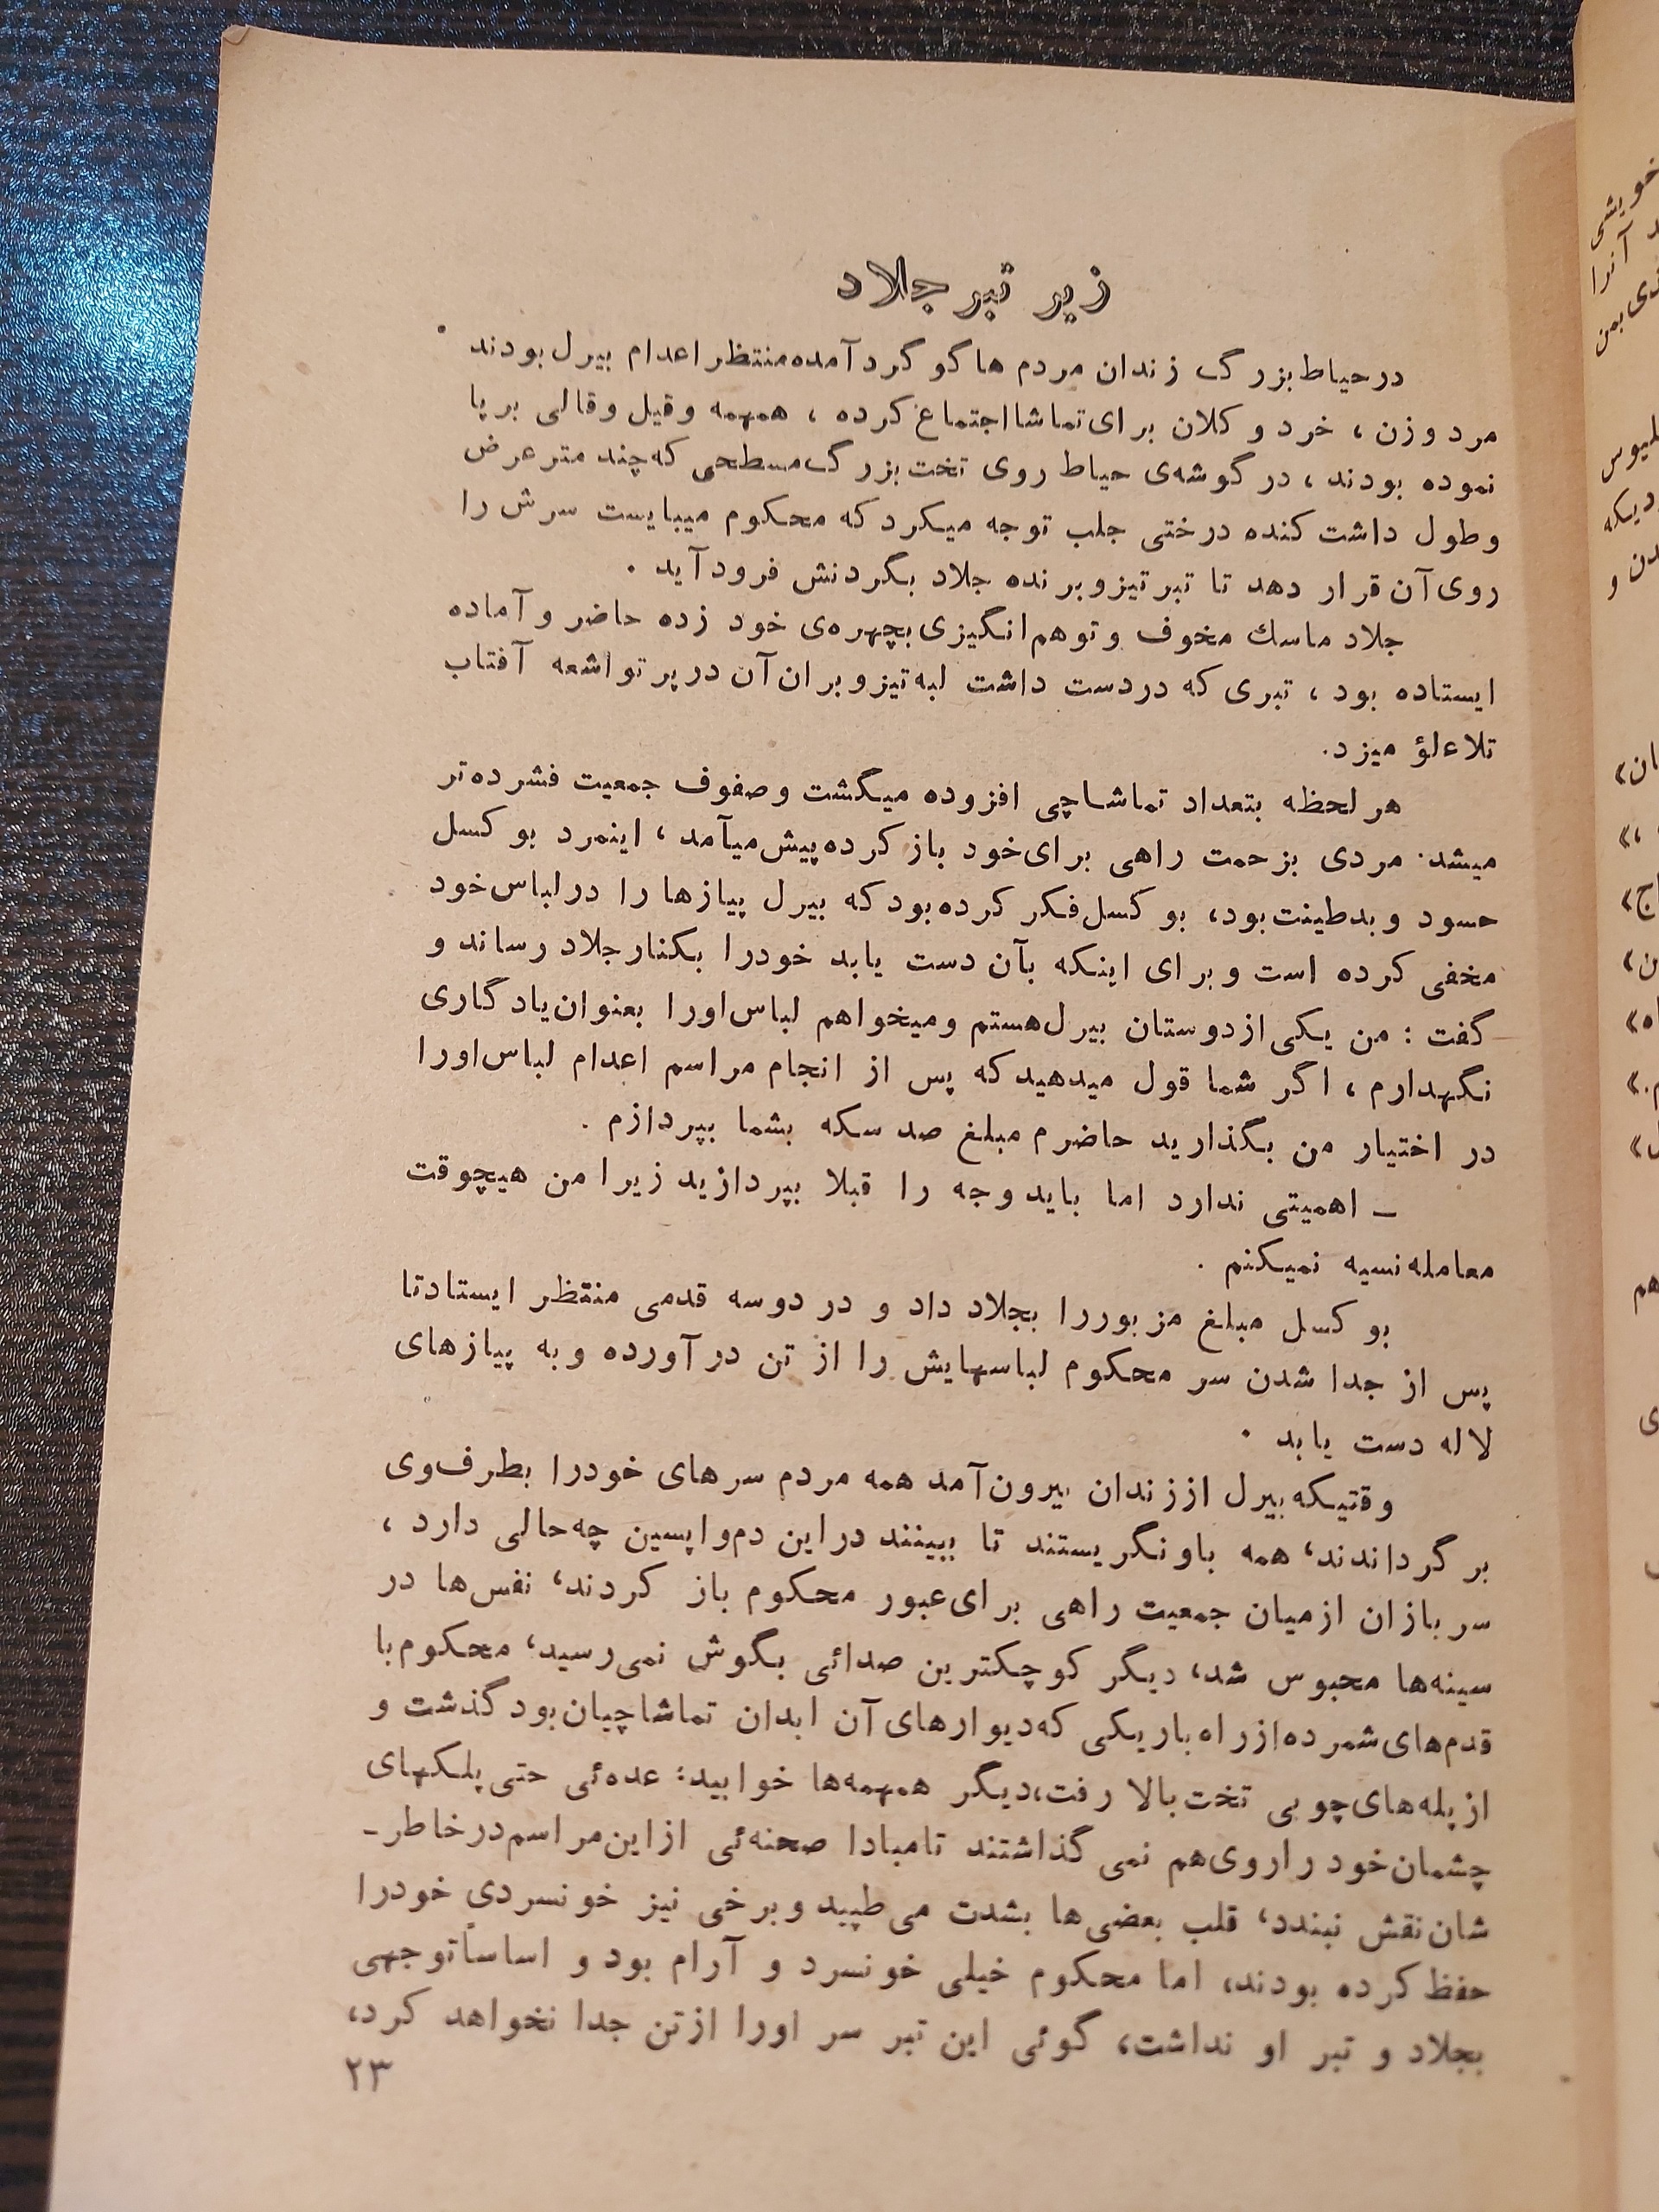 زیر تبر جلاد
در حیاط بزرگ زندان مردم هاگو گرد آمده منتظر اعدام بیرل بودند .
مرد و زن ، خرد و کلان برای تماشا اجتماع کرده ، همهمه و قیل و قالی برپا
نموده بودند ، در گوشه‌ی حیاط روی تخت بزرگ مسطحی که چند متر عرض
و طول داشت کنده درختی جلب توجه میکرد که محکوم میبایست سرش را
روی آن قرار دهد تا تبر تیز و برنده جلاد بگردنش فرود آید .
جلاد ماسك مخوف و توهم انگیزی بچهره‌ی خود زده حاضر و آماده
ایستاده بود ، تبری که در دست داشت لبه تیز و بران آن در پرتو اشعه آفتاب
تلاءلؤ میزد.
هر لحظه بتعداد تماشاچی افزوده میگشت و صفوف جمعیت فشرده‌تر
میشد. مردی بزحمت راهی برای خود باز کرده پیش میآمد ، اینمرد بوکسل
حسود و بدطینت بود، بوکسل فکر کرده بود که بیرل پیازها را در لباس خود
مخفی کرده است و برای اینکه بآن دست یابد خود را بکنار جلاد رساند و
گفت : من یکی از دوستان بیرل هستم و میخواهم لباس اورا بعنوان یادگاری
نگهدارم ، اگر شما قول میدهید که پس از انجام مراسم اعدام لباس اورا
در اختیار من بگذارید حاضرم مبلغ صد سکه بشما بپردازم .
ـ اهمیتی ندارد اما باید وجه را قبلا بپردازید زیرا من هیچوقت
معامله نسیه نمیکنم .
بوکسل مبلغ مزبور را بجلاد داد و در دوسه قدمی منتظر ایستاد تا
پس از جدا شدن سر محکوم لباسهایش را از تن در آورده و به پیازهای
لاله دست یابد .
وقتیکه بیرل از زندان بیرون آمد همه مردم سرهای خودرا بطرف وی
برگرداندند، همه باو نگریستند تا ببینند در این دم واپسین چه حالی دارد ،
سربازان از میان جمعیت راهی برای عبور محکوم باز کردند، نفس‌ها در
سینه‌ها محبوس شد، دیگر کوچکترین صدائی بگوش نمی‌رسید، محکوم با
قدم‌های شمرده از راه باریکی که دیوارهای آن ابدان تماشاچیان بود گذشت و
از پله‌های چوبی تخت بالا رفت، دیگر همهمه‌ها خوابید؛ عده‌ئی حتی پلکهای
چشمان خود را روی هم نمی گذاشتند تا مبادا صحنه‌ئی از این مراسم در خاطرـ
شان نقش نبندد، قلب بعضی‌ها بشدت می‌طپید و برخی نیز خونسردی خودرا
حفظ کرده بودند، اما محکوم خیلی خونسرد و آرام بود و اساساً توجهی
بجلاد و تبر او نداشت، گوئی این تبر سر اورا از تن جدا نخواهد کرد،
۲۳
خویشی
آنرا